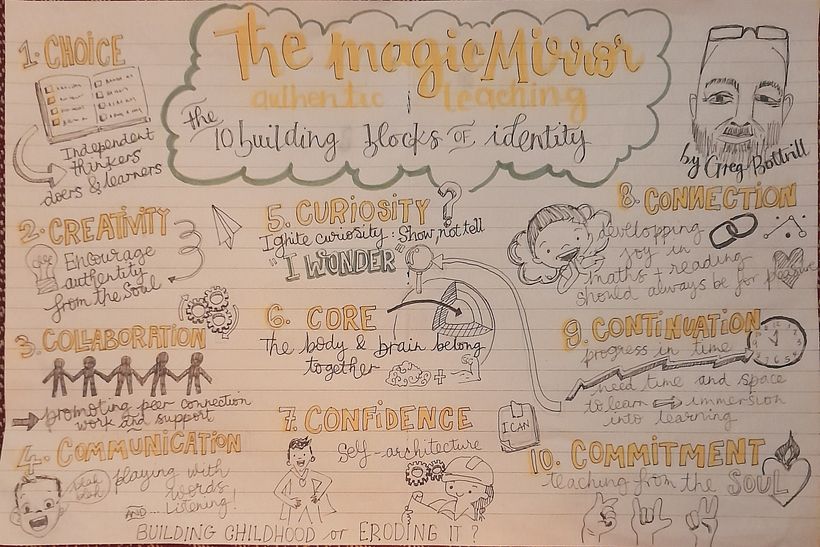 The magic Mirror
authentic teaching
The 10 building blocks OF identity
by Greg Bottrill
1. CHOICE
Independent
thinkers
doers & learners
2. CREATIVITY
Encourage
authentity
from the Soul
3. COLLABORATION
promoting peer connection
work and support
4. COMMUNICATION
blah blah
playing with
words
AND... Listening!
5. CURIOSITY ?
Ignite curiosity: Show, not tell
"I WONDER"
6. CORE
The body & brain belong
together
7. CONFIDENCE
self-architecture
I CAN
8. CONNECTION
developping
joy in
maths + reading
should always be for pleasure
9. CONTINUATION
progress in time
need time and space
to learn immersion
into learning
10. COMMITMENT
teaching from the SOUL
BUILDING CHILDHOOD or ERODING IT?